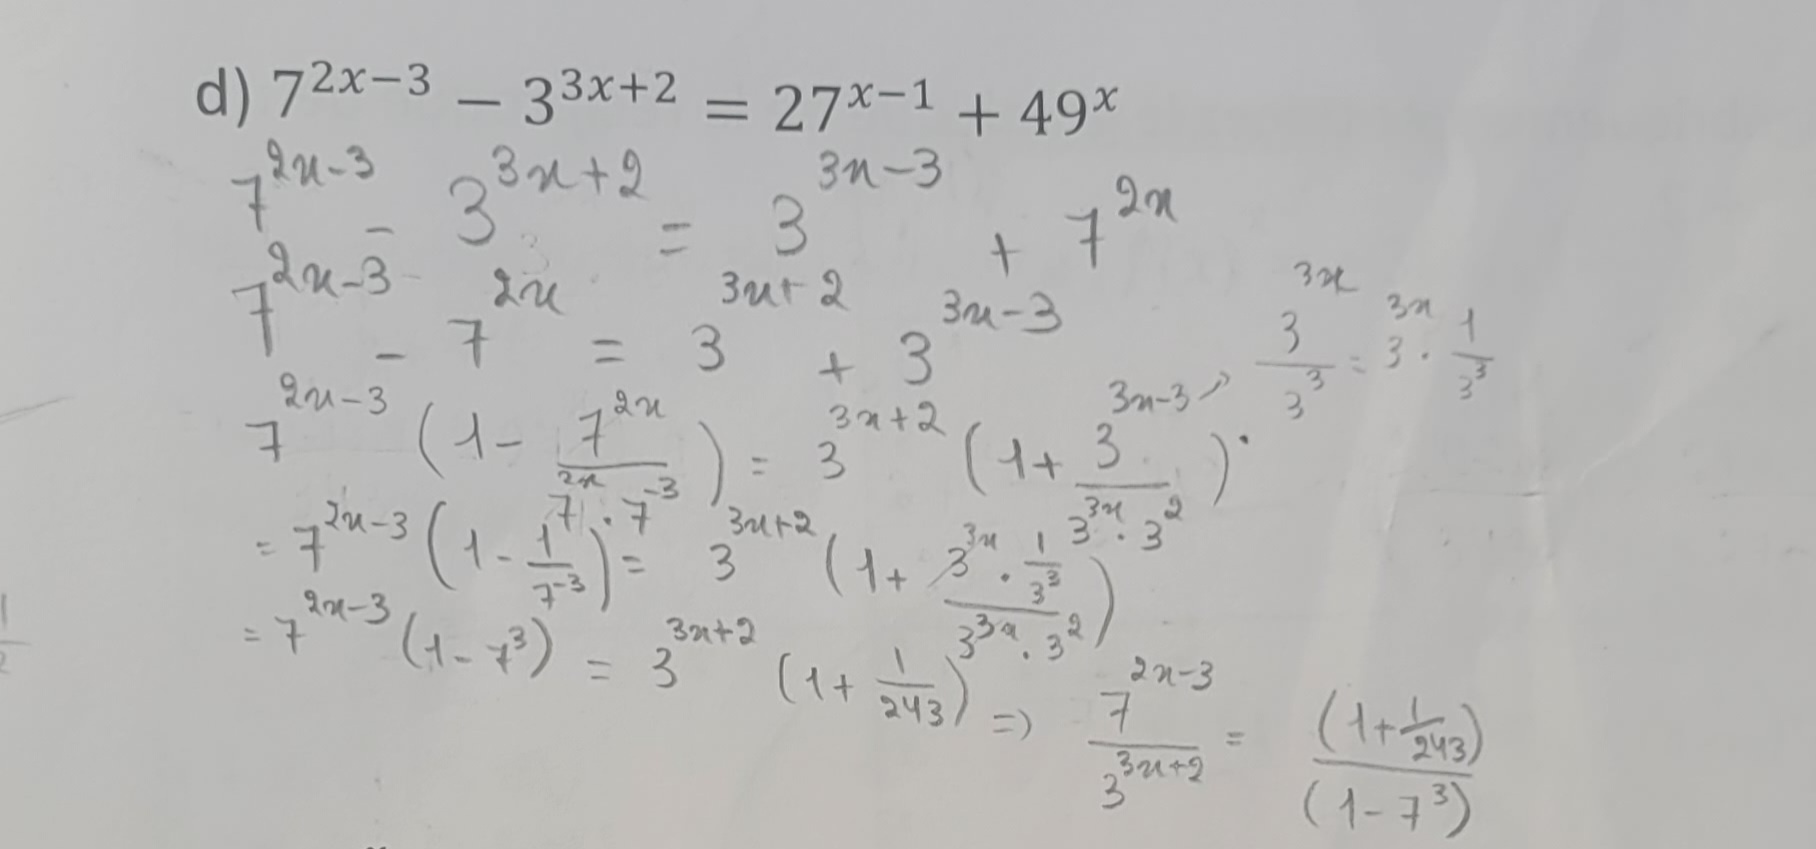 d) 7^{2x−3} − 3^{3x+2} = 27^{x−1} + 49^x
7^{2x-3} - 3^{3x+2} = 3^{3x-3} + 7^{2x}
7^{2x-3} - 7^{2x} = 3^{3x+2} + 3^{3x-3}
3^{3x}/3^3 = 3^{3x} · 1/3^3
7^{2x-3} (1 - 7^{2x}/(7^{2x} · 7^{-3})) = 3^{3x+2} (1 + 3^{3x-3}/(3^{3x} · 3^2)) ·
= 7^{2x-3} (1 - 1/7^{-3}) = 3^{3x+2} (1 + (3^{3x} · 1/3^3)/(3^{3x} · 3^2))
= 7^{2x-3} (1 - 7^3) = 3^{3x+2} (1 + 1/243) => 7^{2x-3}/3^{3x+2} = (1 + 1/243)/(1 - 7^3)